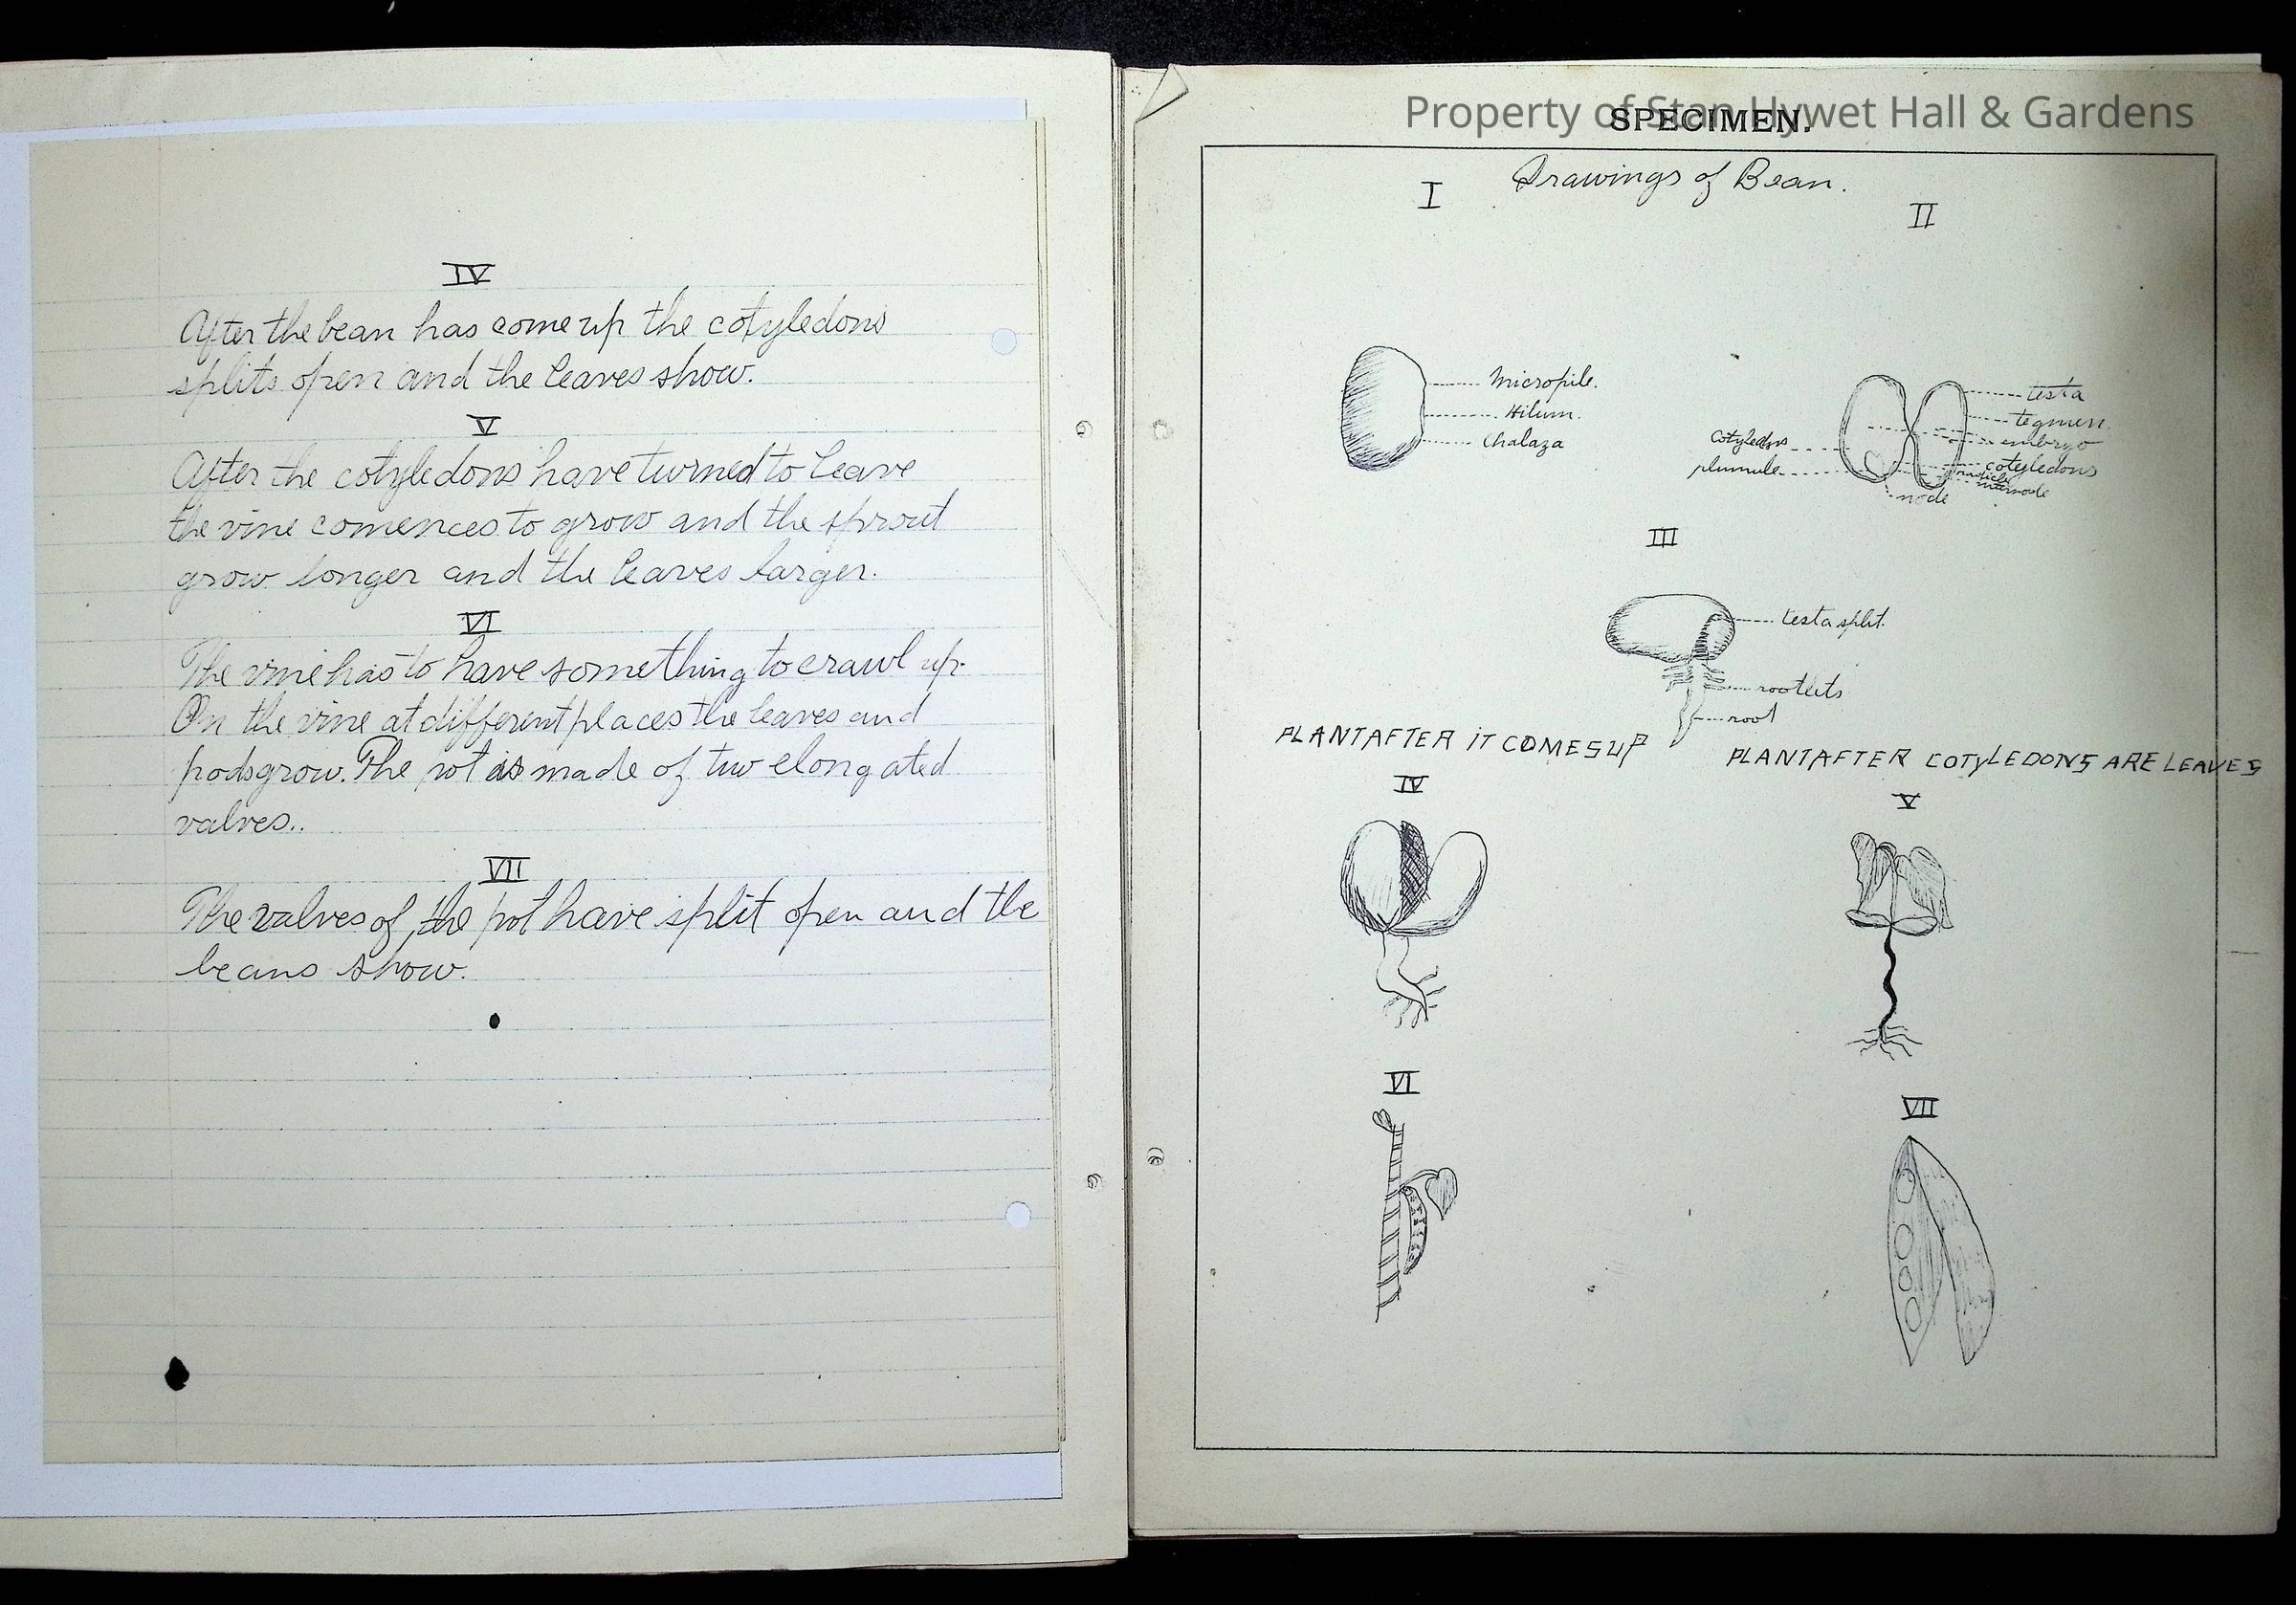 IV
After the bean has come up the cotyledons
splits open and the leaves show.
V
After the cotyledons have turned to leave
the vine comences to grow and the sprout
grow longer and the leaves larger.
VI
The vine has to have something to crawl up.
On the vine at different places the leaves and
pods grow. The pot is made of two elongated
valves..
VII
The valves of the pot have split open and the
beans show.
Property of Stan Hywet Hall & Gardens
SPECIMEN.
Drawings of Bean.
I
II
Micropile.
Hilum.
Chalaza
testa
tegmen.
embryo
cotyledons
radicle
internode
node
Cotyledons
plumule
III
testa split.
rootlets
root
PLANT AFTER IT COMES UP
PLANT AFTER COTYLEDONS ARE LEAVES
IV
V
VI
VII